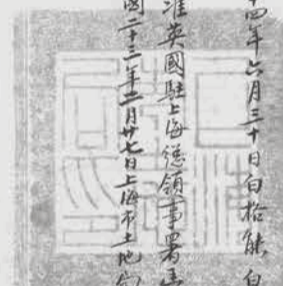 四年六月三十日白格能自
准英國駐上海總領事署
國二十三年二月廿七日上海市土地